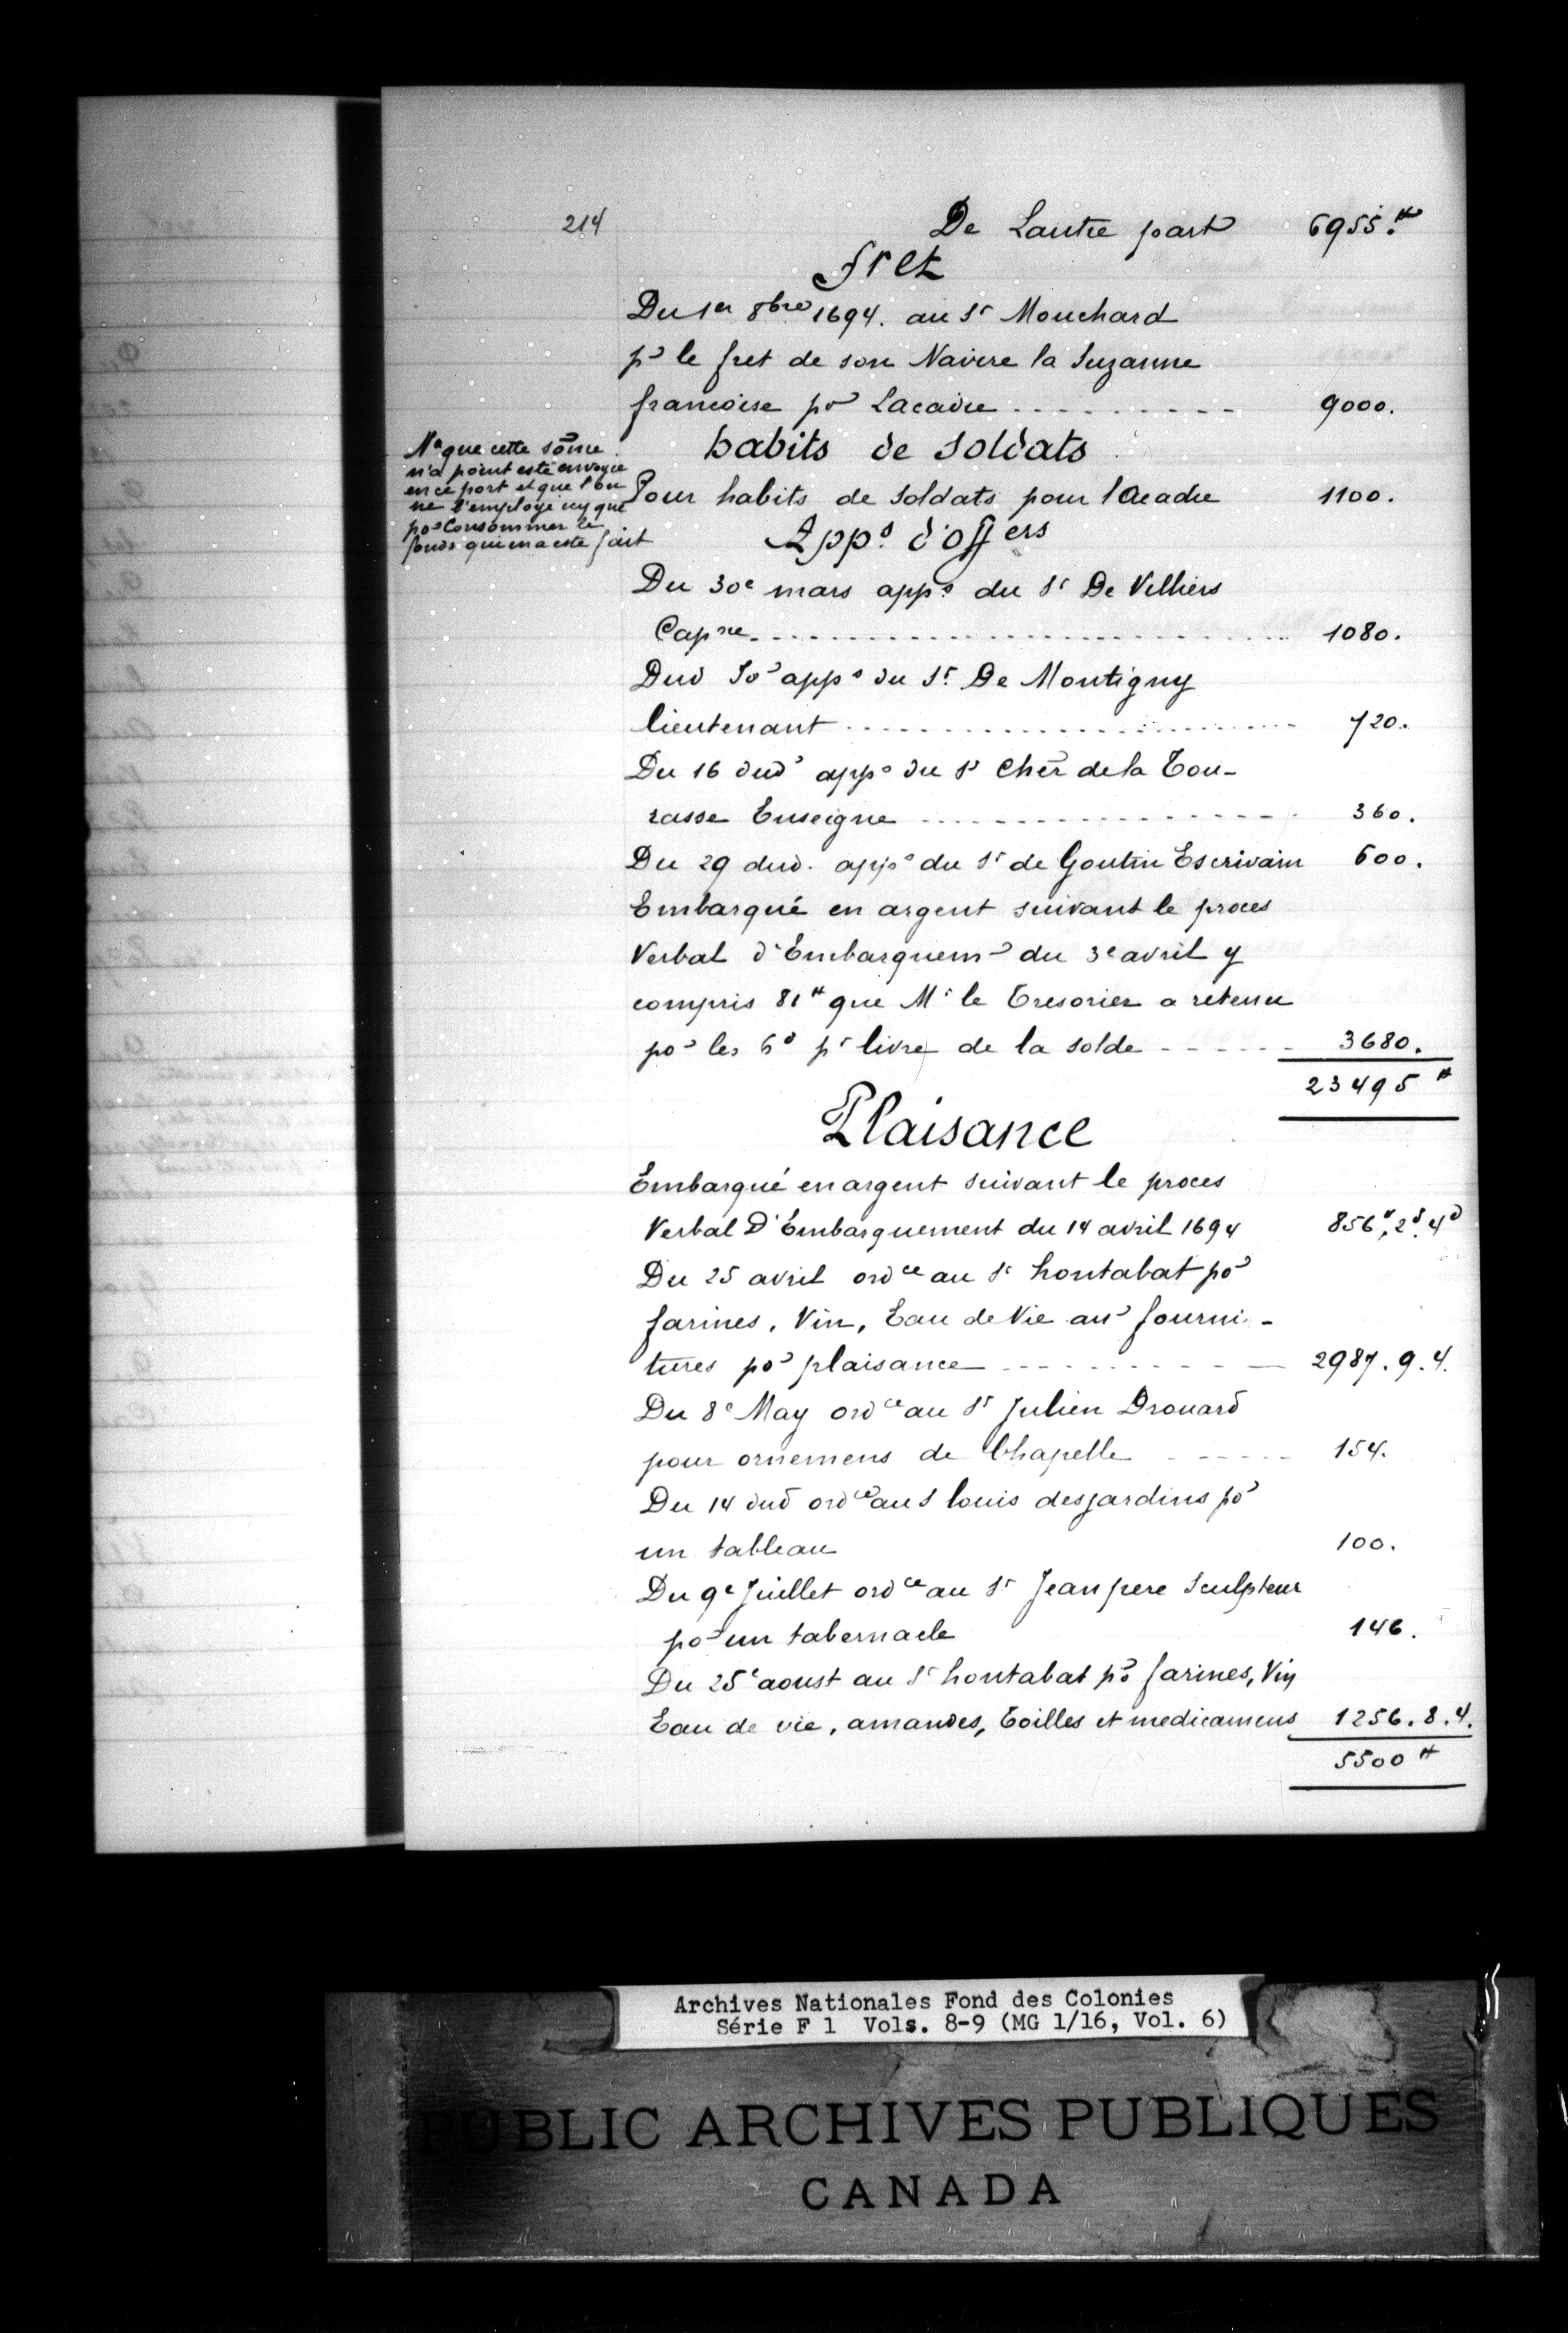 214
De Lautre part 6955.tt
fret
Du 1er 8bre 1694. au Sr Mouchard
pr le fret de son Navire la Suzanne
francoise po Lacadie 9000.
habits de soldats
Na que cette sōme
n'a point esté envoyée
en ce port et que l'on
ne l'employe icy que
por Consommer le
fonds qui en a esté fait
Pour habits de soldats pour l'Acadie 1100.
Apps d'offers
Du 30e mars apps du Sr De Villiers
Capne 1080.
Dud Jor apps du Sr De Montigny
lieutenant 720.
Du 16 dud apps du Sr Cher de la Tou-
rasse Enseigne 360.
Du 29 dud. apps du Sr de Goutin Escrivain 600.
Embarqué en argent suivant le proces
Verbal d'Embarquemt du 3e avril y
compris 81tt que Mr le Tresorier a retenu
por les 6d pr livre de la solde 3680.
23495tt
Plaisance
Embarqué en argent suivant le proces
Verbal D'Embarquement du 14 avril 1694 856tt.2s.4d
Du 25 avril ordce au Sr hontabat por
farines, Vin, Eau de Vie aus fourni-
tures por plaisance 2987.9.4.
Du 8e May ordce au Sr Julien Drouard
pour ornemens de Chapelle 154.
Du 14 dud ordce au S louis desjardins por
un tableau 100.
Du 9e Juillet ordce au Sr Jean pere Sculpteur
por un tabernacle 146.
Du 25e aoust au Sr hontabat por farines, Vin
Eau de vie, amandes, Toilles et medicamens 1256.8.4.
5500tt
Archives Nationales Fond des Colonies
Série F 1 Vols. 8-9 (MG 1/16, Vol. 6)
PUBLIC ARCHIVES PUBLIQUES
CANADA